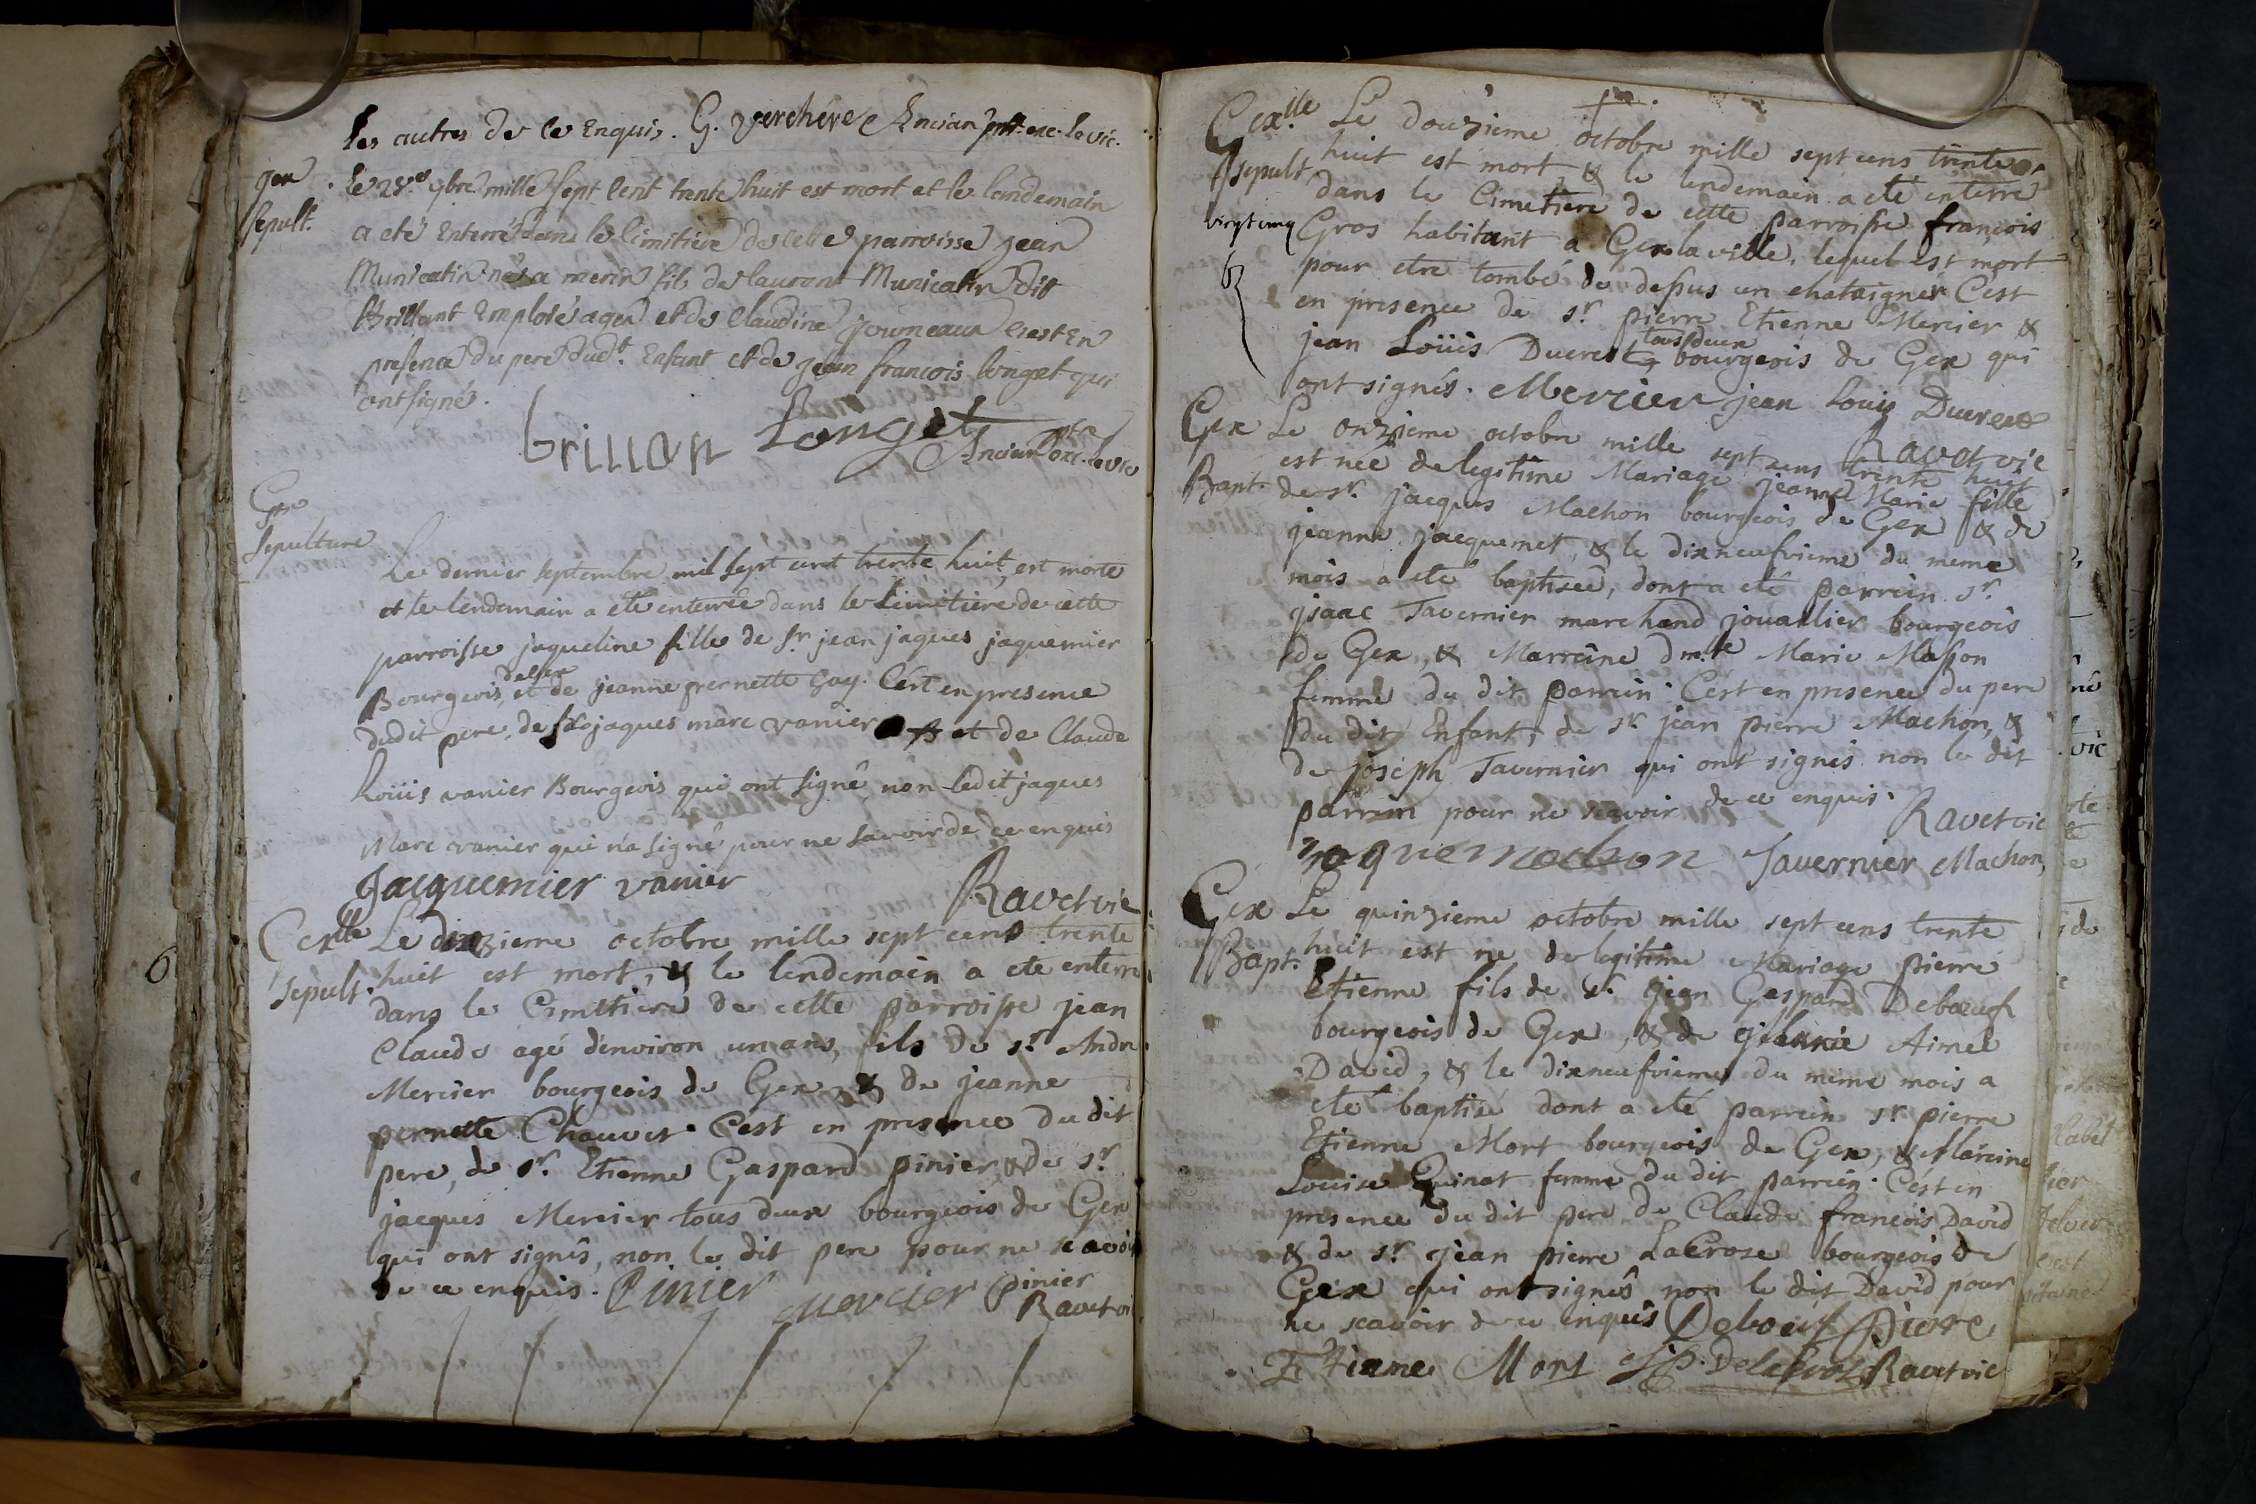 les autres de ce Enquis. G. Verchere Ancian ptr. exc. le vic.
gex
sepult.
le 28.e 9bre mille sept Cent trente huit est mort et le landemain
a eté Enterré dans le Cimitiere de Cette parroisse jean
Municatin né a merin fils de laurent Municatin dit
Brillant Emploié a gex et de Claudine journeaux C'est En
presence du pere dudt. Enfant et de jean francois longet qui
ont signé.
brillan Longet
Ancian ptre exc. le vic
Gex
Sepulture
Le dernier septembre mil sept cent trente huit, est morte
et le lendemain a eté enterrée dans le Cimitiere de cette
parroisse jaqueline fille de sr. jean jaques jaquemier
Bourgeois de Gex et de jeanne pernette Gay. C'est en presence
dudit pere, de jaques marc vanier et de Claude
Loüis vanier Bourgeois qui ont signé non ledit jaques
Marc vanier qui n'a signé pour ne savoir de ce enquis
Jacquemier vanier
Ravet vic
Gex lle
sepult.
Le dixzieme octobre mille sept cens trente
huit est mort, & le lendemain a eté enterré
dans le Cimetiere de cette parroisse jean
Claude agé d'environ un ans, fils de sr. Andre
Mercier bourgeois de Gex, & de jeanne
pernette Chauvet. C'est en presence du dit
pere, de sr. Etienne Gaspard pinier, & de sr.
jacques Mercier tous deux bourgeois de Gex
qui ont signés, non le dit pere pour ne scavoir
de ce enquis. Pinier Mercier pinier
Ravet vic
Gex lle
sepult
vingt cinq
Le douzieme octobre mille sept cens trente
huit est mort, & le lendemain a eté enterré
dans le Cimetiere de cette parroisse françois
Gros habitant a Gex la ville, lequel est mort
pour etre tombé de dessus un chataigner C'est
en presence de sr. pierre Etienne Mercier &
jean Loüis Ducret tous deux bourgeois de Gex qui
ont signés. Mercier jean Louis Ducret
Ravet vic
Gex
Bapt.
Le onzieme octobre mille sept cens trente huit
est née de legitime Mariage jeanne Marie fille
de sr. jacques Machon bourgeois de Gex & de
jeanne jacquemet, & le dixneufvieme du meme
mois a eté baptisée, dont a eté parrein sr.
jsaac Tavernier marchand jouaillier bourgeois
de Gex, & Marreine dm.lle Marie Masson
femme du dit parrein. C'est en presence du pere
du dit Enfant, de sr. jean pierre Machon, &
de joseph Tavernier qui ont signés non le dit
parrein pour ne scavoir de ce enquis.
Ravet vic
jaque machon Tavernier Machon
Gex
Bapt.
Le quinzieme octobre mille sept cens trente
huit est né de legitime Mariage pierre
Etienne fils de sr. jean Gaspard Deboeuf
bourgeois de Gex, & de Aimée
David, & le dixneufvieme du meme mois a
eté baptisé dont a eté parrein sr. pierre
Etienne Mort bourgeois de Gex, & Mareine
Louise Quinat femme du dit parrein. C'est en
presence du dit pere de Claude francois David
& de sr. jean pierre LaCrose bourgeois de
Gex qui ont signés non le dit David pour
ne scavoir de ce enquis Deboeuf Pierre
Etiane Mort Jp. Delacroz Ravet vic